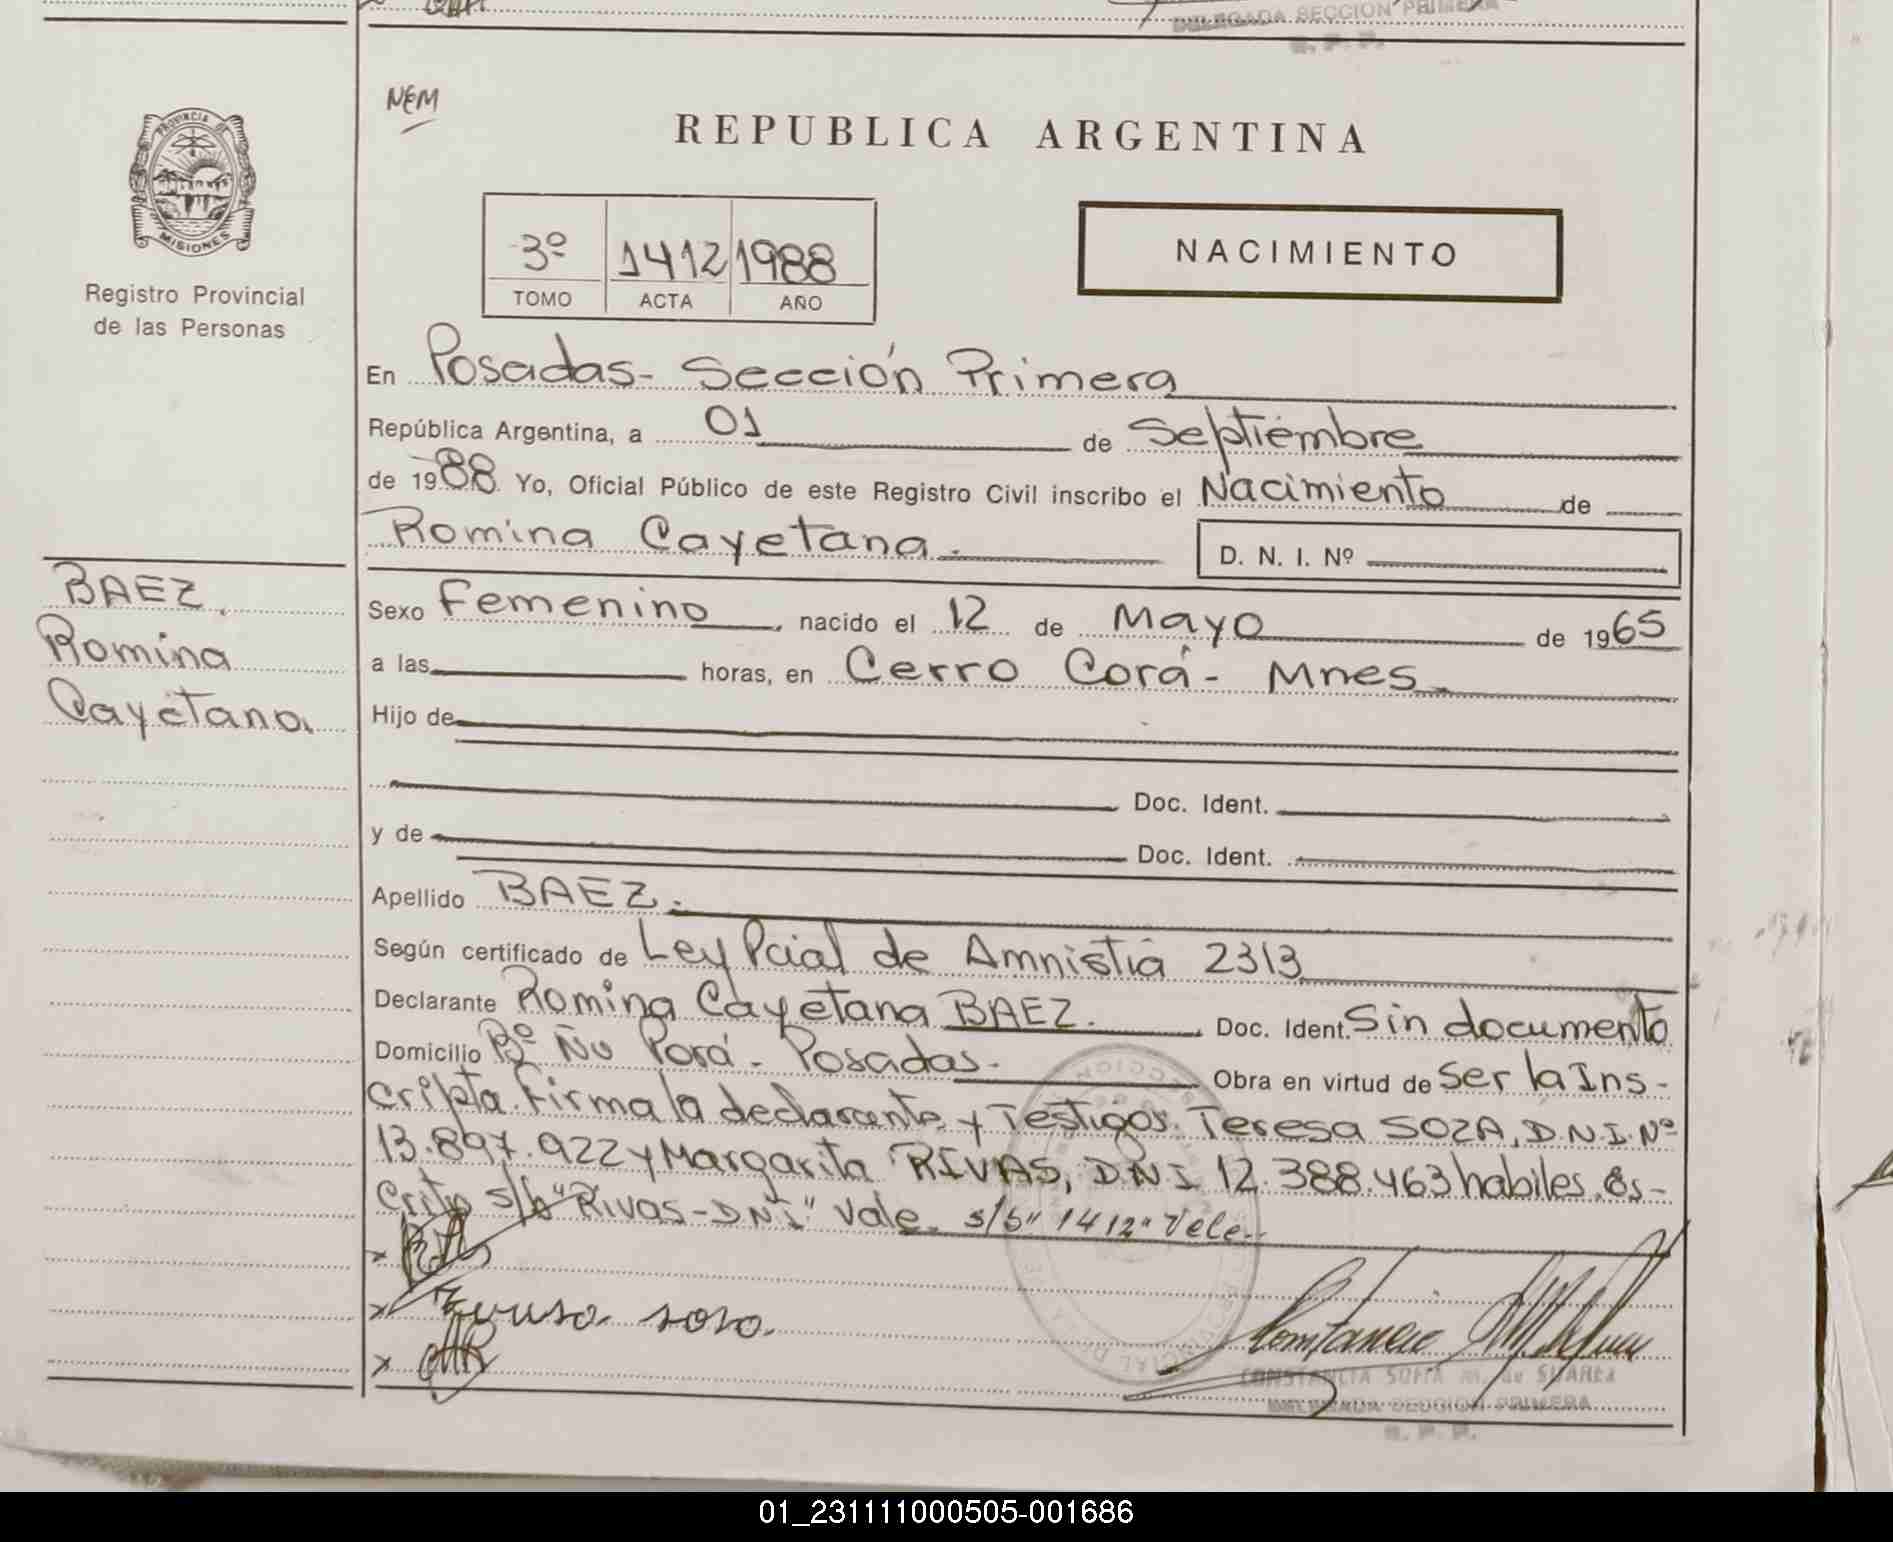 DELEGADA SECCION PRIMERA
R. P. P.
NEM
PROVINCIA DE
MISIONES
Registro Provincial
de las Personas
REPUBLICA ARGENTINA
3º 1412 1988
TOMO ACTA AÑO
NACIMIENTO
En Posadas- Sección Primera
República Argentina, a 01 de Septiembre
de 1988. Yo, Oficial Público de este Registro Civil inscribo el Nacimiento de
Romina Cayetana.
D. N. I. Nº
BAEZ.
Romina
Cayetana.
Sexo Femenino, nacido el 12 de Mayo de 1965
a las horas, en Cerro Corá- Mnes.
Hijo de
Doc. Ident.
y de Doc. Ident.
Apellido BAEZ.
Según certificado de Ley Pcial de Amnistia 2313
Declarante Romina Cayetana BAEZ. Doc. Ident. Sin documento
Domicilio Bº Ñu Porá- Posadas- Obra en virtud de Ser la Ins-
cripta. Firma la declarante y Testigos. Teresa SOZA, D.N.I. Nº
13.897.922 y Margarita RIVAS, D.N.I 12.388.463 habiles. Es-
crito s/b "Rivas-DNI" Vale. s/b "1412" Vale.
x
x soso.
x
CONSTANCIA SOFIA M. de SUAREZ
DELEGADA SECCION PRIMERA
R. P. P.
01_231111000505-001686